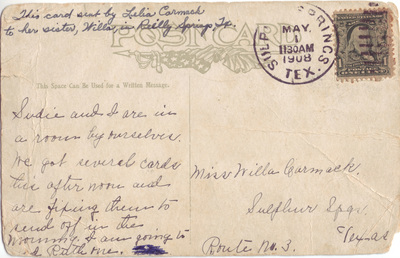 This card sent by Lelia Cormack
to her sister, Willa, in Reilly Springs, Tx.
POST CARD
SULP. SPRINGS
MAY
1
1130AM
1908
TEX.
This Space Can Be Used for a Written Message.
Sudie and I are in
a room by ourselves.
We got several cards
this after noon and
are fixing them to
send off in the
morning. I am going to
Miss Willa Cormack.
Sulphur Spgs.
Route No. 3.
Texas